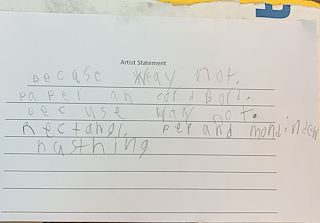 Artist Statement
Becase Weay not.
paper an cord Bord.
Becuse Way not.
Rectangl. per and
nasthing